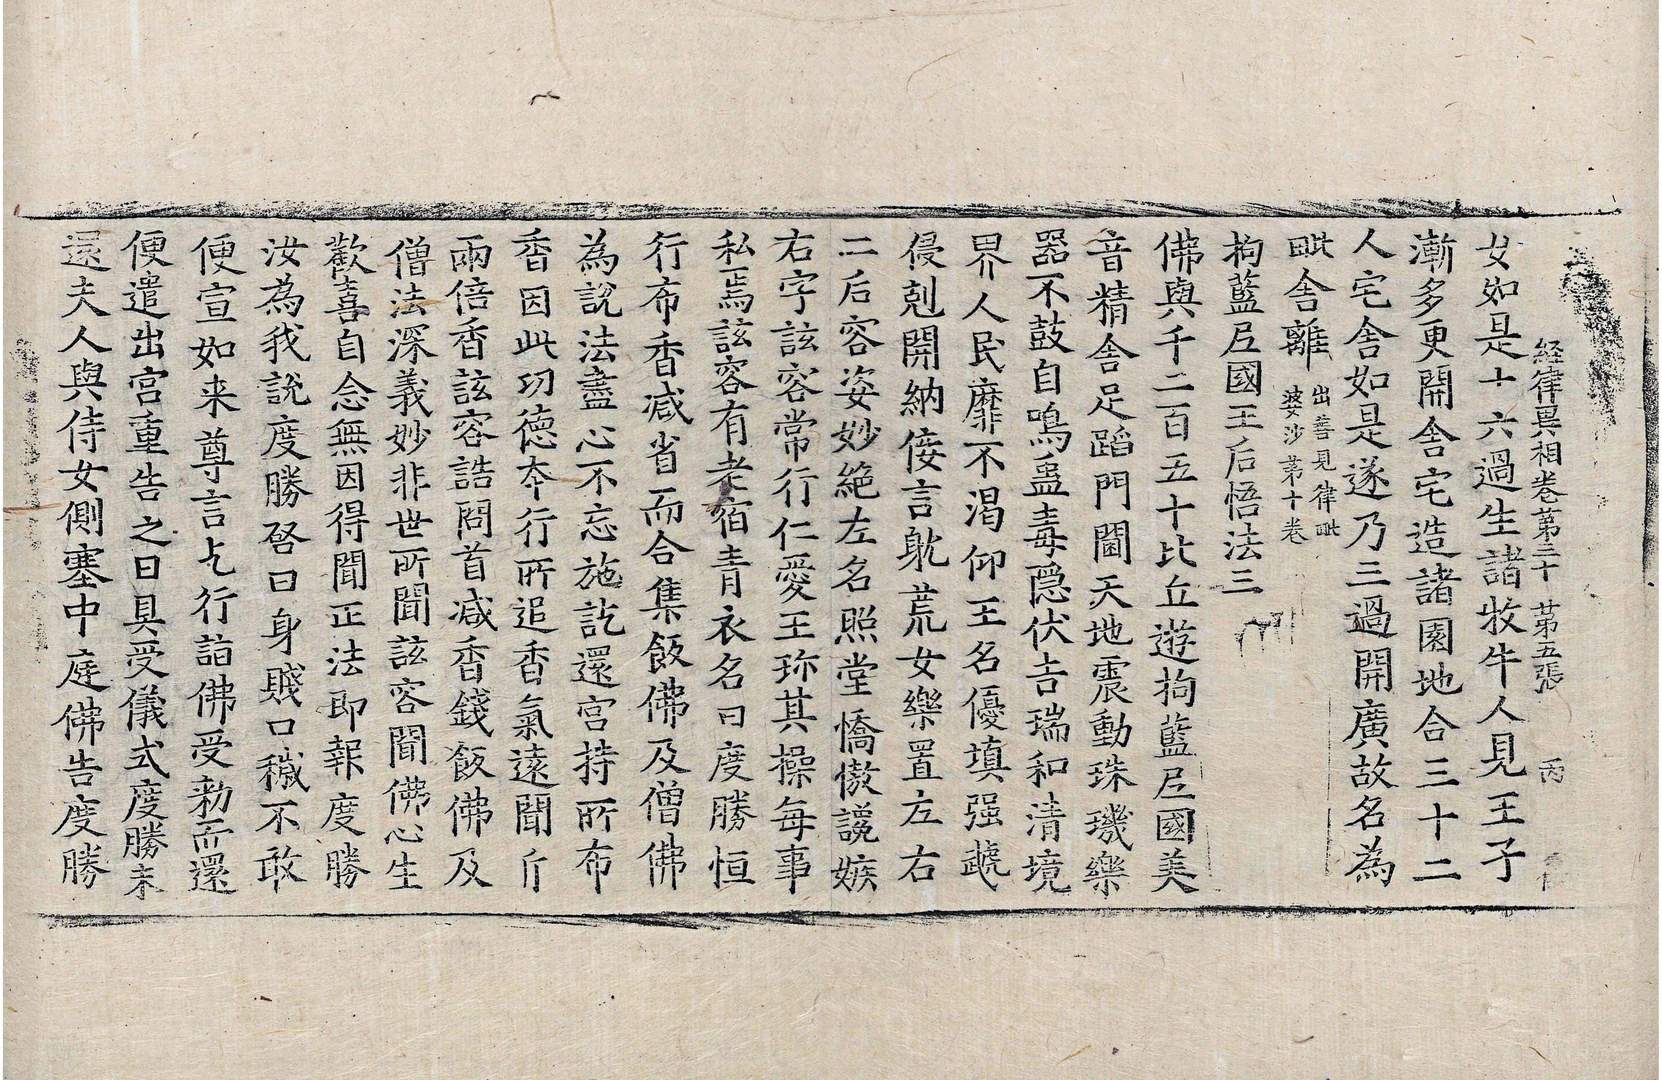 経律異相卷第三十 第五張 丙
女如是十六過生諸牧牛人見王子
漸多更開舍宅造諸園地合三十二
人宅舍如是遂乃三過開廣故名為
毗舍離
出善見律毗
婆沙第十卷
拘藍尼國王后悟法三
佛與千二百五十比丘遊拘藍尼國美
音精舍足蹈門閫天地震動珠璣樂
器不鼓自鳴蠱毒隱伏吉瑞和清境
界人民靡不渴仰王名優填强
侵剋開納倿言躭荒女樂置左右
二后容姿妙絶左名照堂憍慠讒嫉
右字該容常行仁愛王珎其操每事
私焉該容有老宿青衣名曰度勝恒
行布香減省而合集飯佛及僧佛
為說法盡心不忘施訖還宮持所布
香因此功德本行所追香氣遠聞斤
兩倍香該容詰問首減香錢飯佛及
僧法深義妙非世所聞該容聞佛心生
歡喜自念無因得聞正法即報度勝
汝為我說度勝啓曰身賤口穢不敢
便宣如来尊言乞行詣佛受勑而還
便遣出宮重告之曰具受儀式度勝未
還夫人與侍女側塞中庭佛告度勝